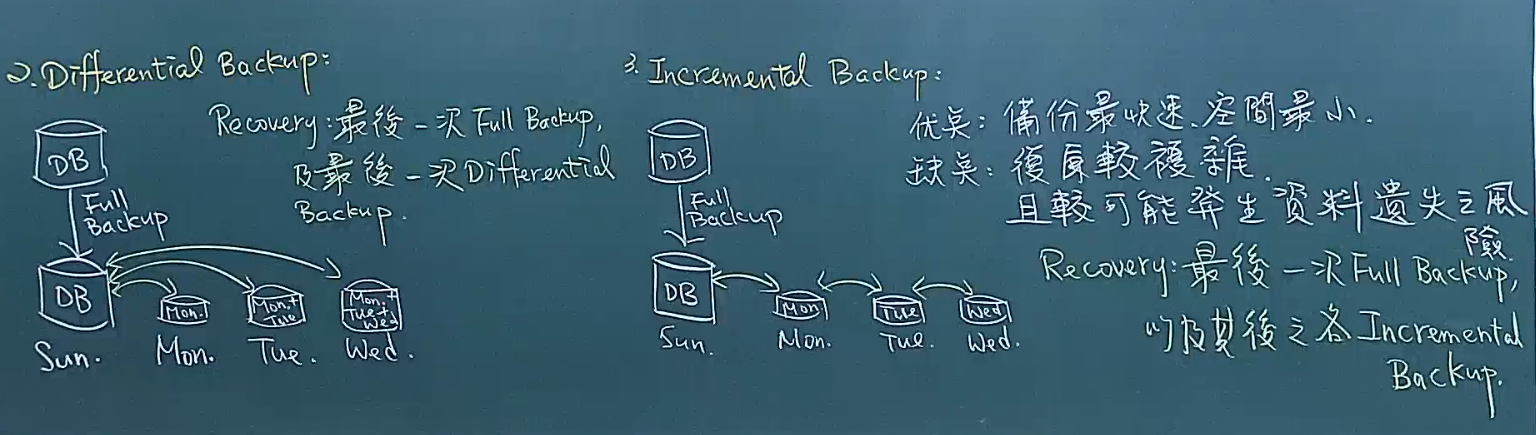 2. Differential Backup:
Recovery: 最後一次 Full Backup,
及最後一次 Differential
Backup.
DB
Full
Backup
DB
Mon.
Mon.+
Tue
Mon.+
Tue+
Wed
Sun.
Mon.
Tue.
Wed.
3. Incremental Backup:
DB
Full
Backup
DB
Mon
Tue
Wed
Sun.
Mon.
Tue.
Wed.
优奌: 備份最快速、空間最小.
缺奌: 復原較複雜.
且較可能發生資料遺失之風
險.
Recovery: 最後一次 Full Backup,
以及其後之各 Incremental
Backup.